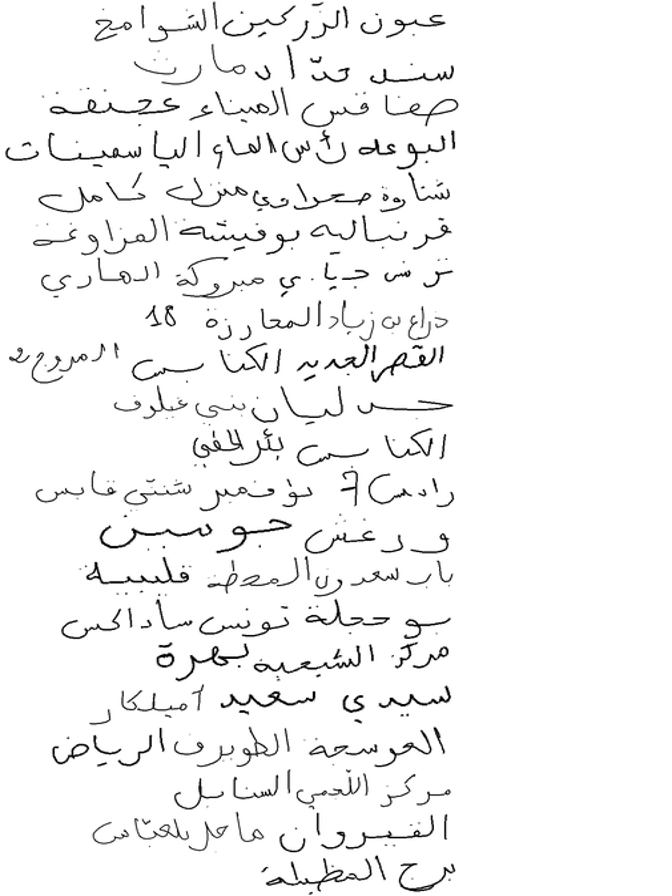 عيون الزّركين الشوامخ
سند حدّاد مارث
صفاقس الميناء عجنقة
رأس الماء الياسمينات
شتاوة صحراوي منزل كامل
قرنبالية بوفيشة المزاوغة
مبروكة الهاري
ذراع بن زياد المعارزة 18
القصر الجديد الكنايس المروج 2
حد ليان بني غيلوف
الكنايس بئر الحفي
رادس 7 نوفمبر شنتي قابس
ورغش جوسين
باب سعدون المحطة قليبية
بوحجلة تونس ساداكس
مركز الشيعبية بهرة
سيدي سعيد أميلكار
العوسجة الطويرف الرياض
مركز اللّجمي السنابل
القيروان ماجل بلعبّاس
برج المظيلة